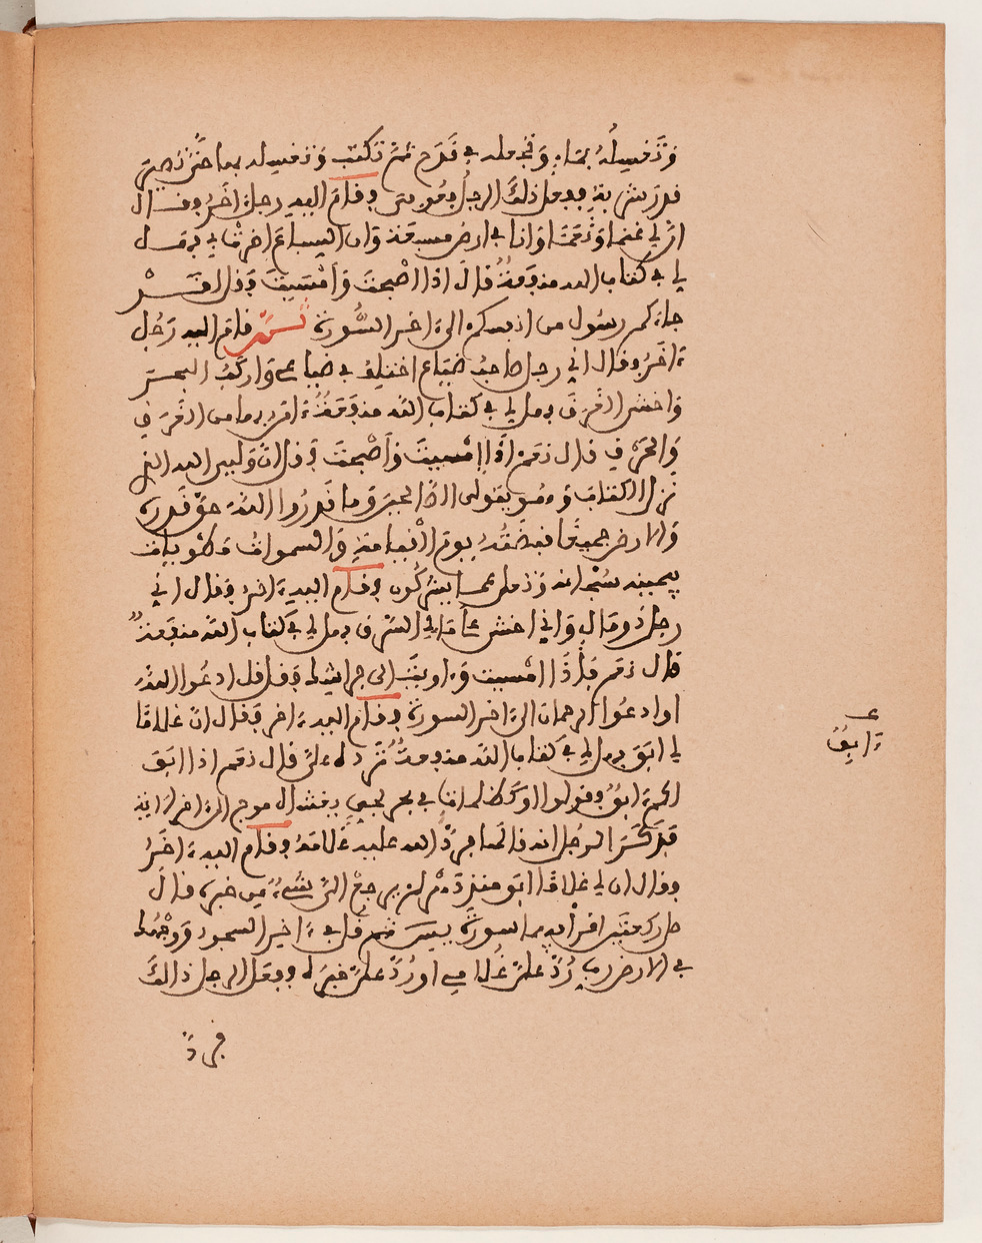 وَتَغْسِلُهُ بماءٍ وَتجعله في قَدَح ثمّ تكتب وَتغسله بماء حَتَّى تصير
قدر شربة ففعل ذلكَ الرجل فعوفي فقام اليه رجل ءاخر فقال
انّ لي غنما وَنعما وَانا في ارض مسبعة وَان السباع اضرّت بي فهل
لي في كتاب الله منفعة قال اذا اصْبحت وَامْسَيت فقل لقدْ
جاءكم رسول من انفسكم الى ءاخر السُّورة ثمّ قام اليه رَجُل
ءاخر وقال اني رجل صاحب ضياع اختلف في ضياعي وَاركبُ البحر
وَاخشى الغرق فهل لي في كتاب الله منفعة اقرء بها من الغرق
وَالحرق قال نعم اذا امسيت وَأصْبحت فقل ان وَليي الله الذي
نزل الكتاب وَهو يتولى الصالحين وَما قدرُوا الله حقّ قدره
وَالارض جميعًا قبضته يوم القيامة وَالسموات مطويات
بيمينه سبْحانه وَتعلى عما يشركون فقام اليه ءاخر فقال اني
رجل ذو مال وَاني اخشى على مالي السرق فهل لي في كتاب الله منفعة
قال نعم فإذَا امْسيت وَاويت الى فراشك فقل قل ادعُوا الله
او ادعُوا الرحمان الى ءاخر السورة فقام اليه ءاخر فقال انّ غلامًا
لي ابق فهل لي في كتاب الله منفعة تردّه عليّ قال نعم اذا ابق
لكم ءابقٌ فقولوا او كظلمات في بحر لجي يغشاه موج الى ءاخر الاية
فذكَرَ الرجل انه قالها فردّ الله عليه غلامه فقام اليه ءاخر
فقال ان لي غلامًا ابق منذ دهْر لم يرجعْ اليّ شيءٌ من خبره قال
صل ركعتين اقرأ فيهما سورة يس ثم قل في ءاخر السجود وَوجْهك
في الارض ربّ رُدّ عليّ غلامي او رُدّ عليّ خبره ففعل الرجل ذالكَ
ءابقٌ
فردّ